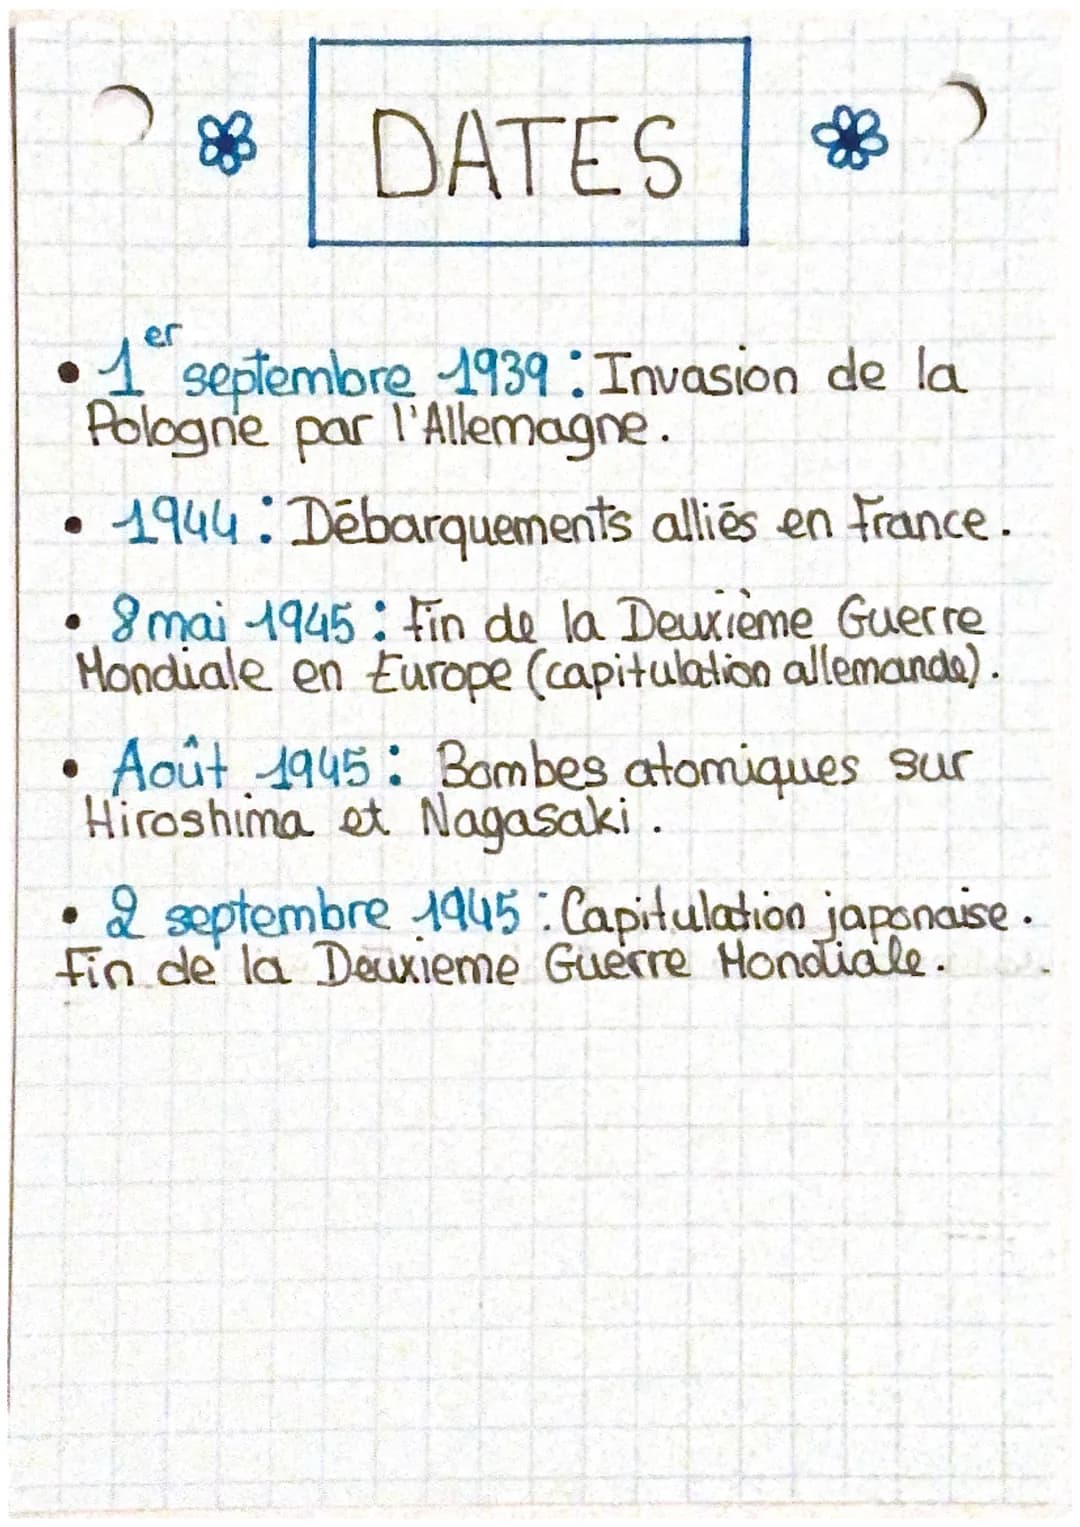 DATES
• 1er septembre 1939 : Invasion de la
Pologne par l'Allemagne.
• 1944 : Débarquements alliés en France.
• 8 mai 1945 : Fin de la Deuxième Guerre
Mondiale en Europe (capitulation allemande).
• Août 1945 : Bombes atomiques sur
Hiroshima et Nagasaki.
• 2 septembre 1945 : Capitulation japonaise.
Fin de la Deuxieme Guerre Mondiale.